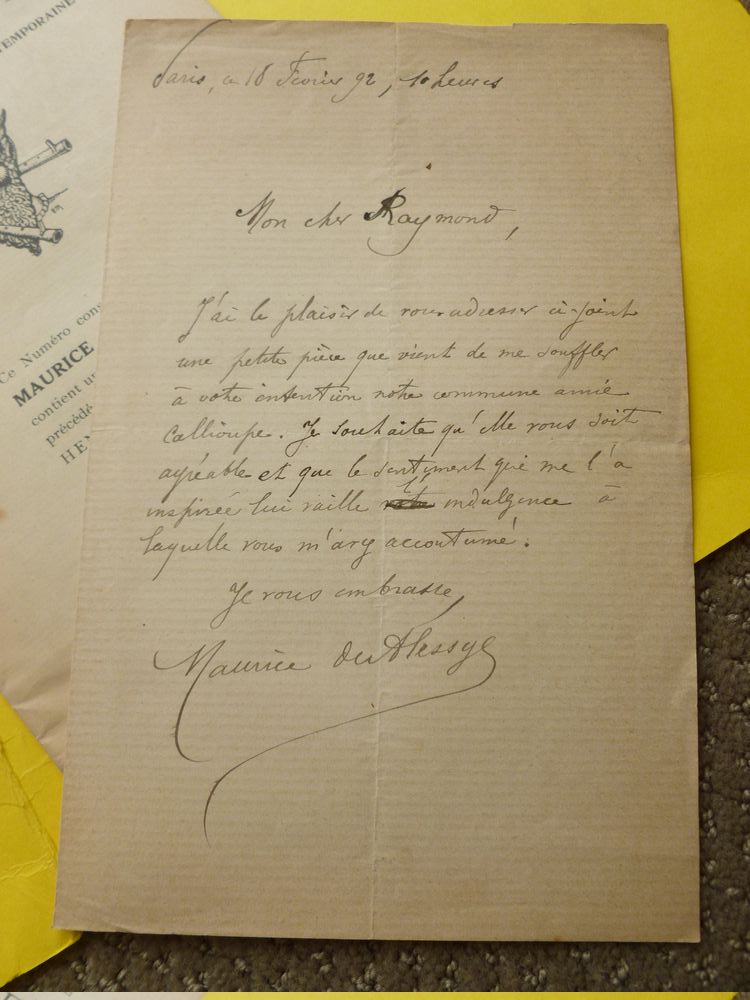 TEMPORAINE
Ce Numéro cons
MAURICE
contient un
précédé
HEN
Paris, ce 16 Février 92, 10 heures
Mon cher Raymond,
J'ai le plaisir de vous adresser ci-joint
une petite pièce que vient de me souffler
à votre intention notre commune amie
Callioupe. Je souhaite qu'elle vous soit
agréable et que le sentiment qui me l'a
inspirée lui vaille l' indulgence à
laquelle vous m'avez accoutumé.
Je vous embrasse,
Maurice du Plessys